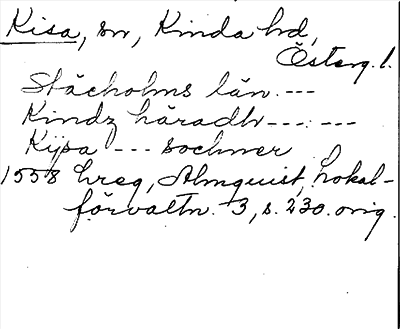 Kisa, sn, Kinda hd,
Österg. l.
Stächolms län. ---
Kindz häradh --- ---
Kijsa --- sochner
1558 hreg, Almquist, Lokal-
förvaltn. 3, s. 230. orig.